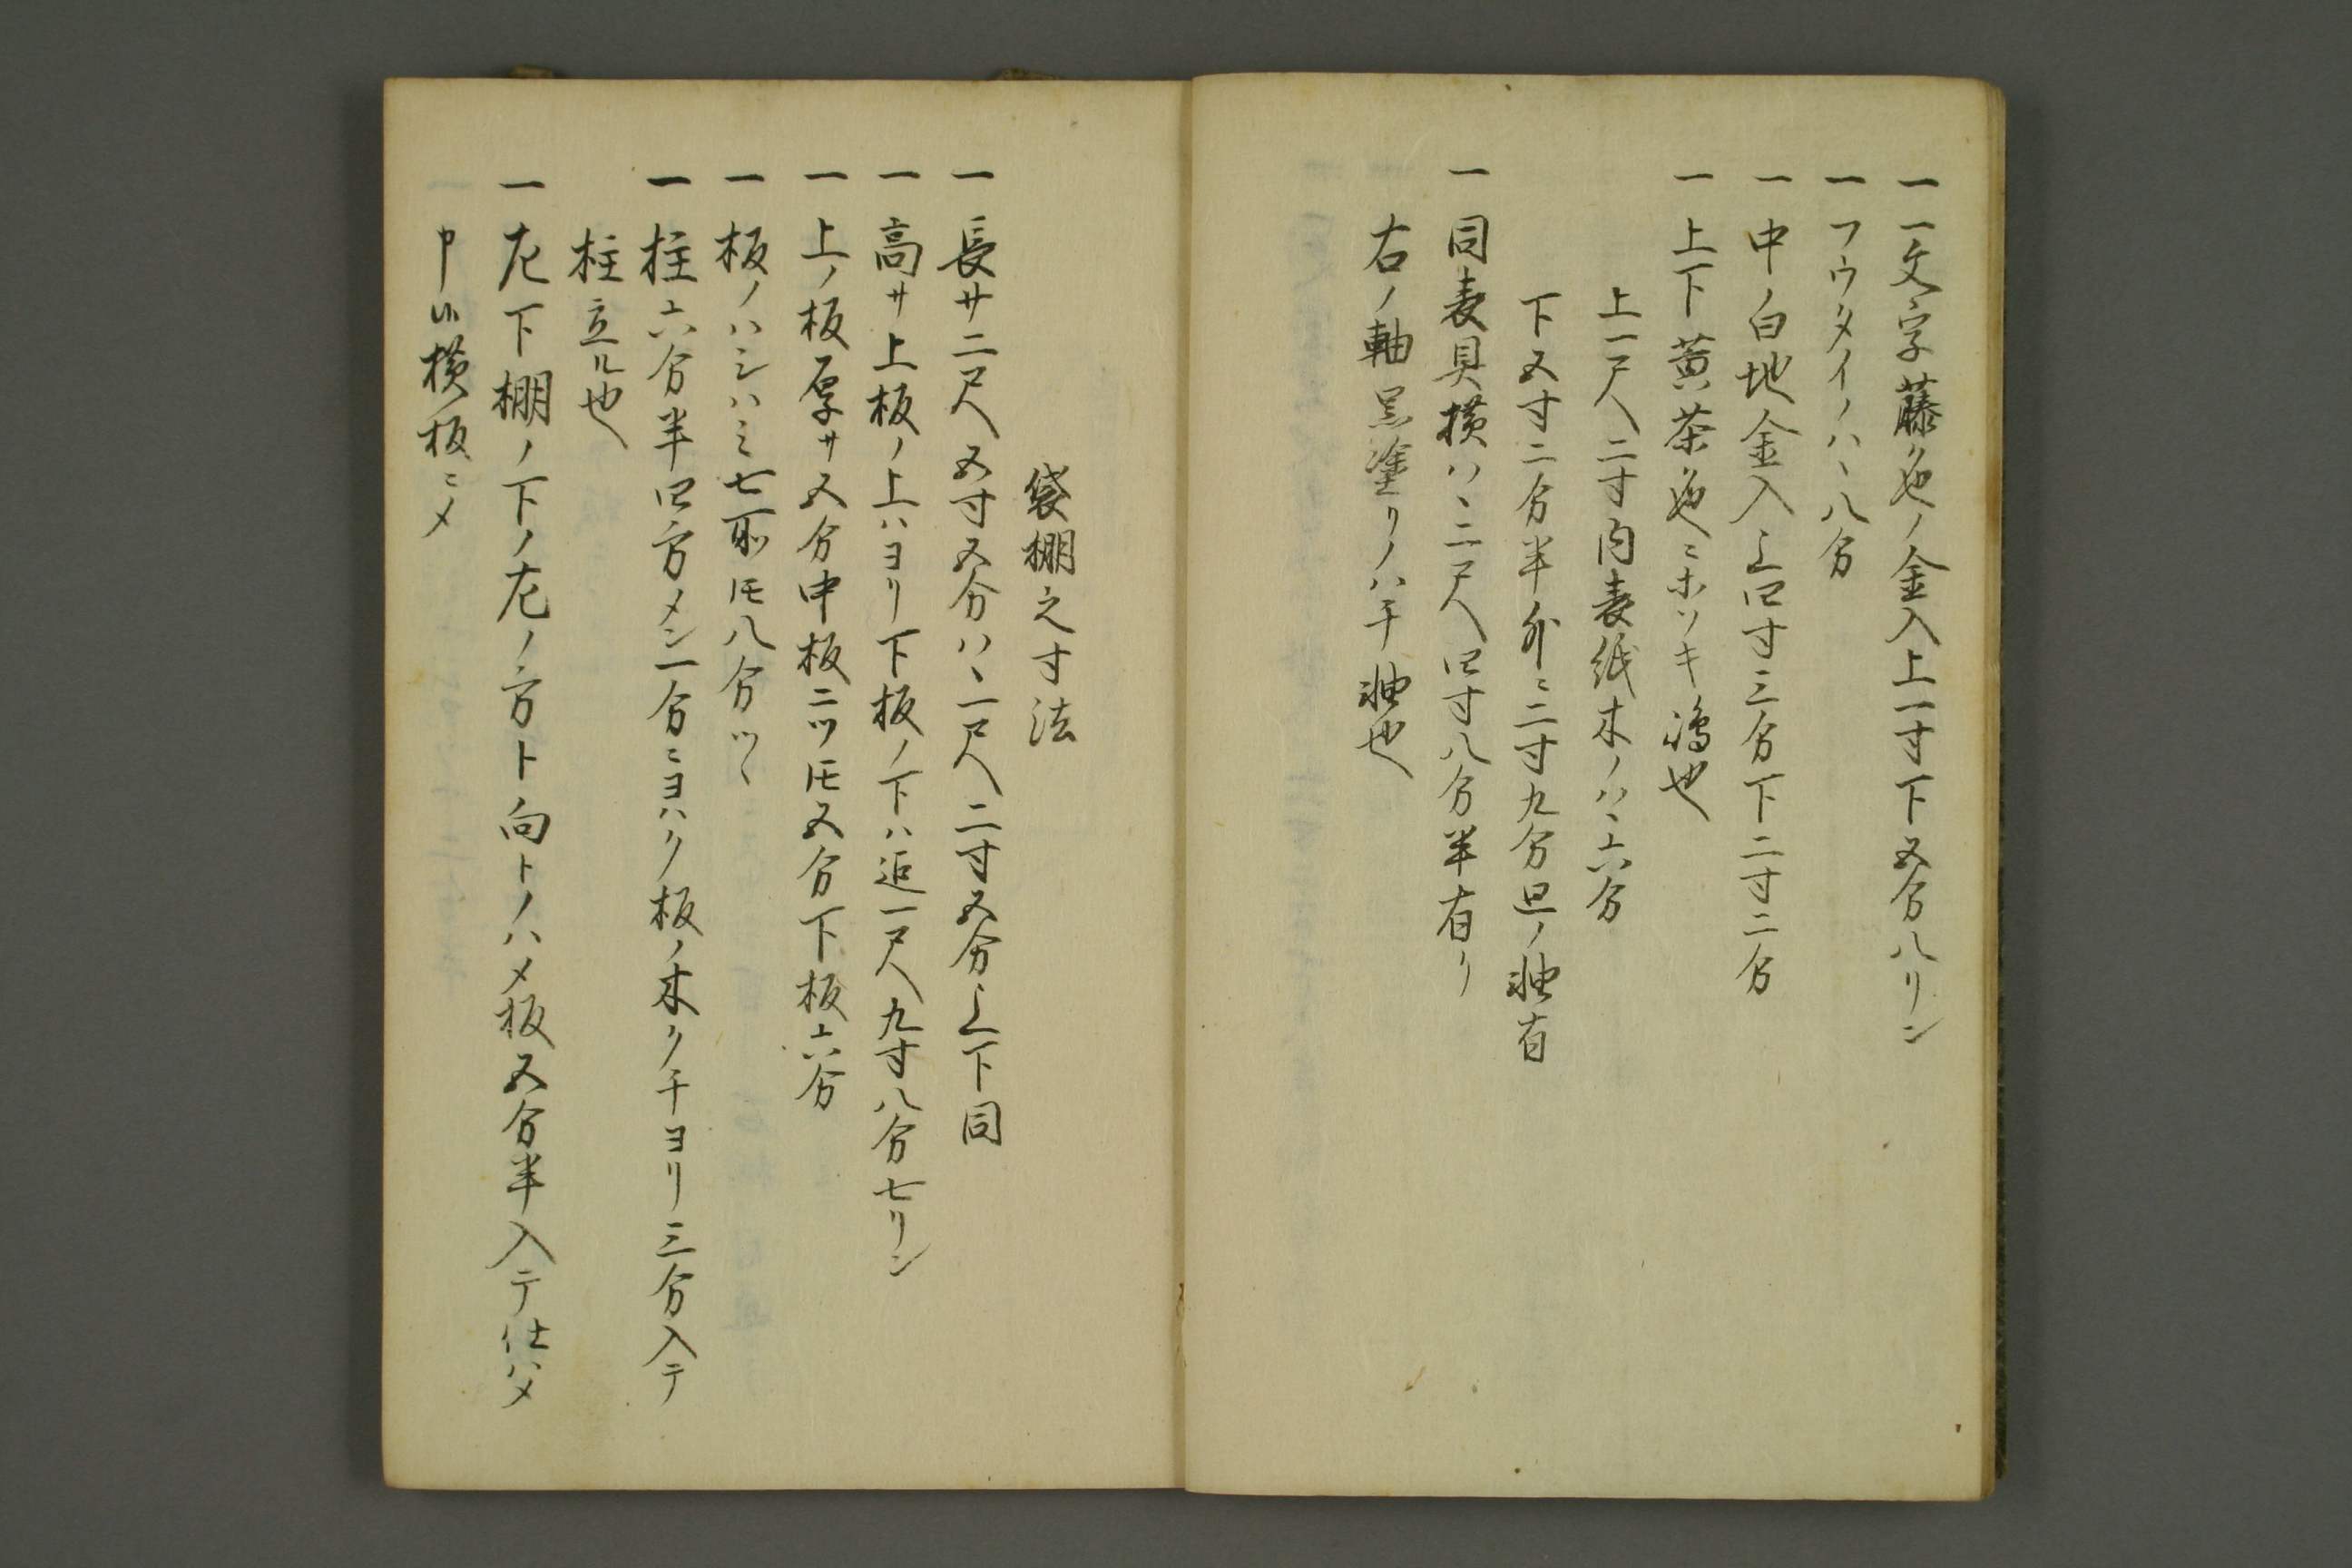 一 一文字藤色ノ金入上一寸下五分八リン
一 フウタイノハヽ八分
一 中ノ白地金入上四寸三分下二寸二分
一 上下黄茶色ニホソキ嶋也
上一尺二寸内表紙木ノハヽ六分
下五寸二分半外ニ二寸九分旦ノ軸有
一 同表具横ハヽ二尺四寸八分半有リ
右ノ軸黒塗リノハチ軸也
袋棚之寸法
一 長サ二尺五寸五分ハヽ一尺二寸五分上下同
一 高サ上板ノ上ハヨリ下板ノ下ハ迄一尺九寸八分七リン
一 上ノ板厚サ五分中板二ツ圧五分下板六分
一 板ノハシハミ七所圧八分ツヽ
一 柱六分半四方メン一分ニヨハク板ノ木クチヨリ三分入テ
柱立ル也
一 左下棚ノ下ノ左ノ方ト向トノハメ板五分半入テ仕ハメ
申候横板ニメ